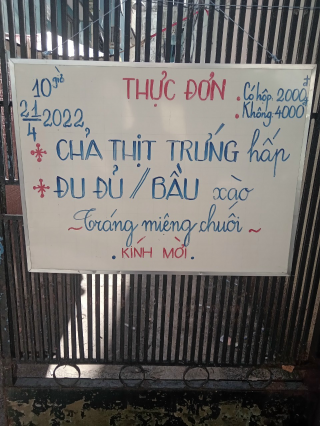 10 giờ
THỰC ĐƠN
Có hộp. 2000đ
Không 4000đ
21/4 2022
CHẢ THỊT TRỨNG hấp
ĐU ĐỦ // BẦU xào
~ Tráng miệng chuối ~
. KÍNH MỜI .